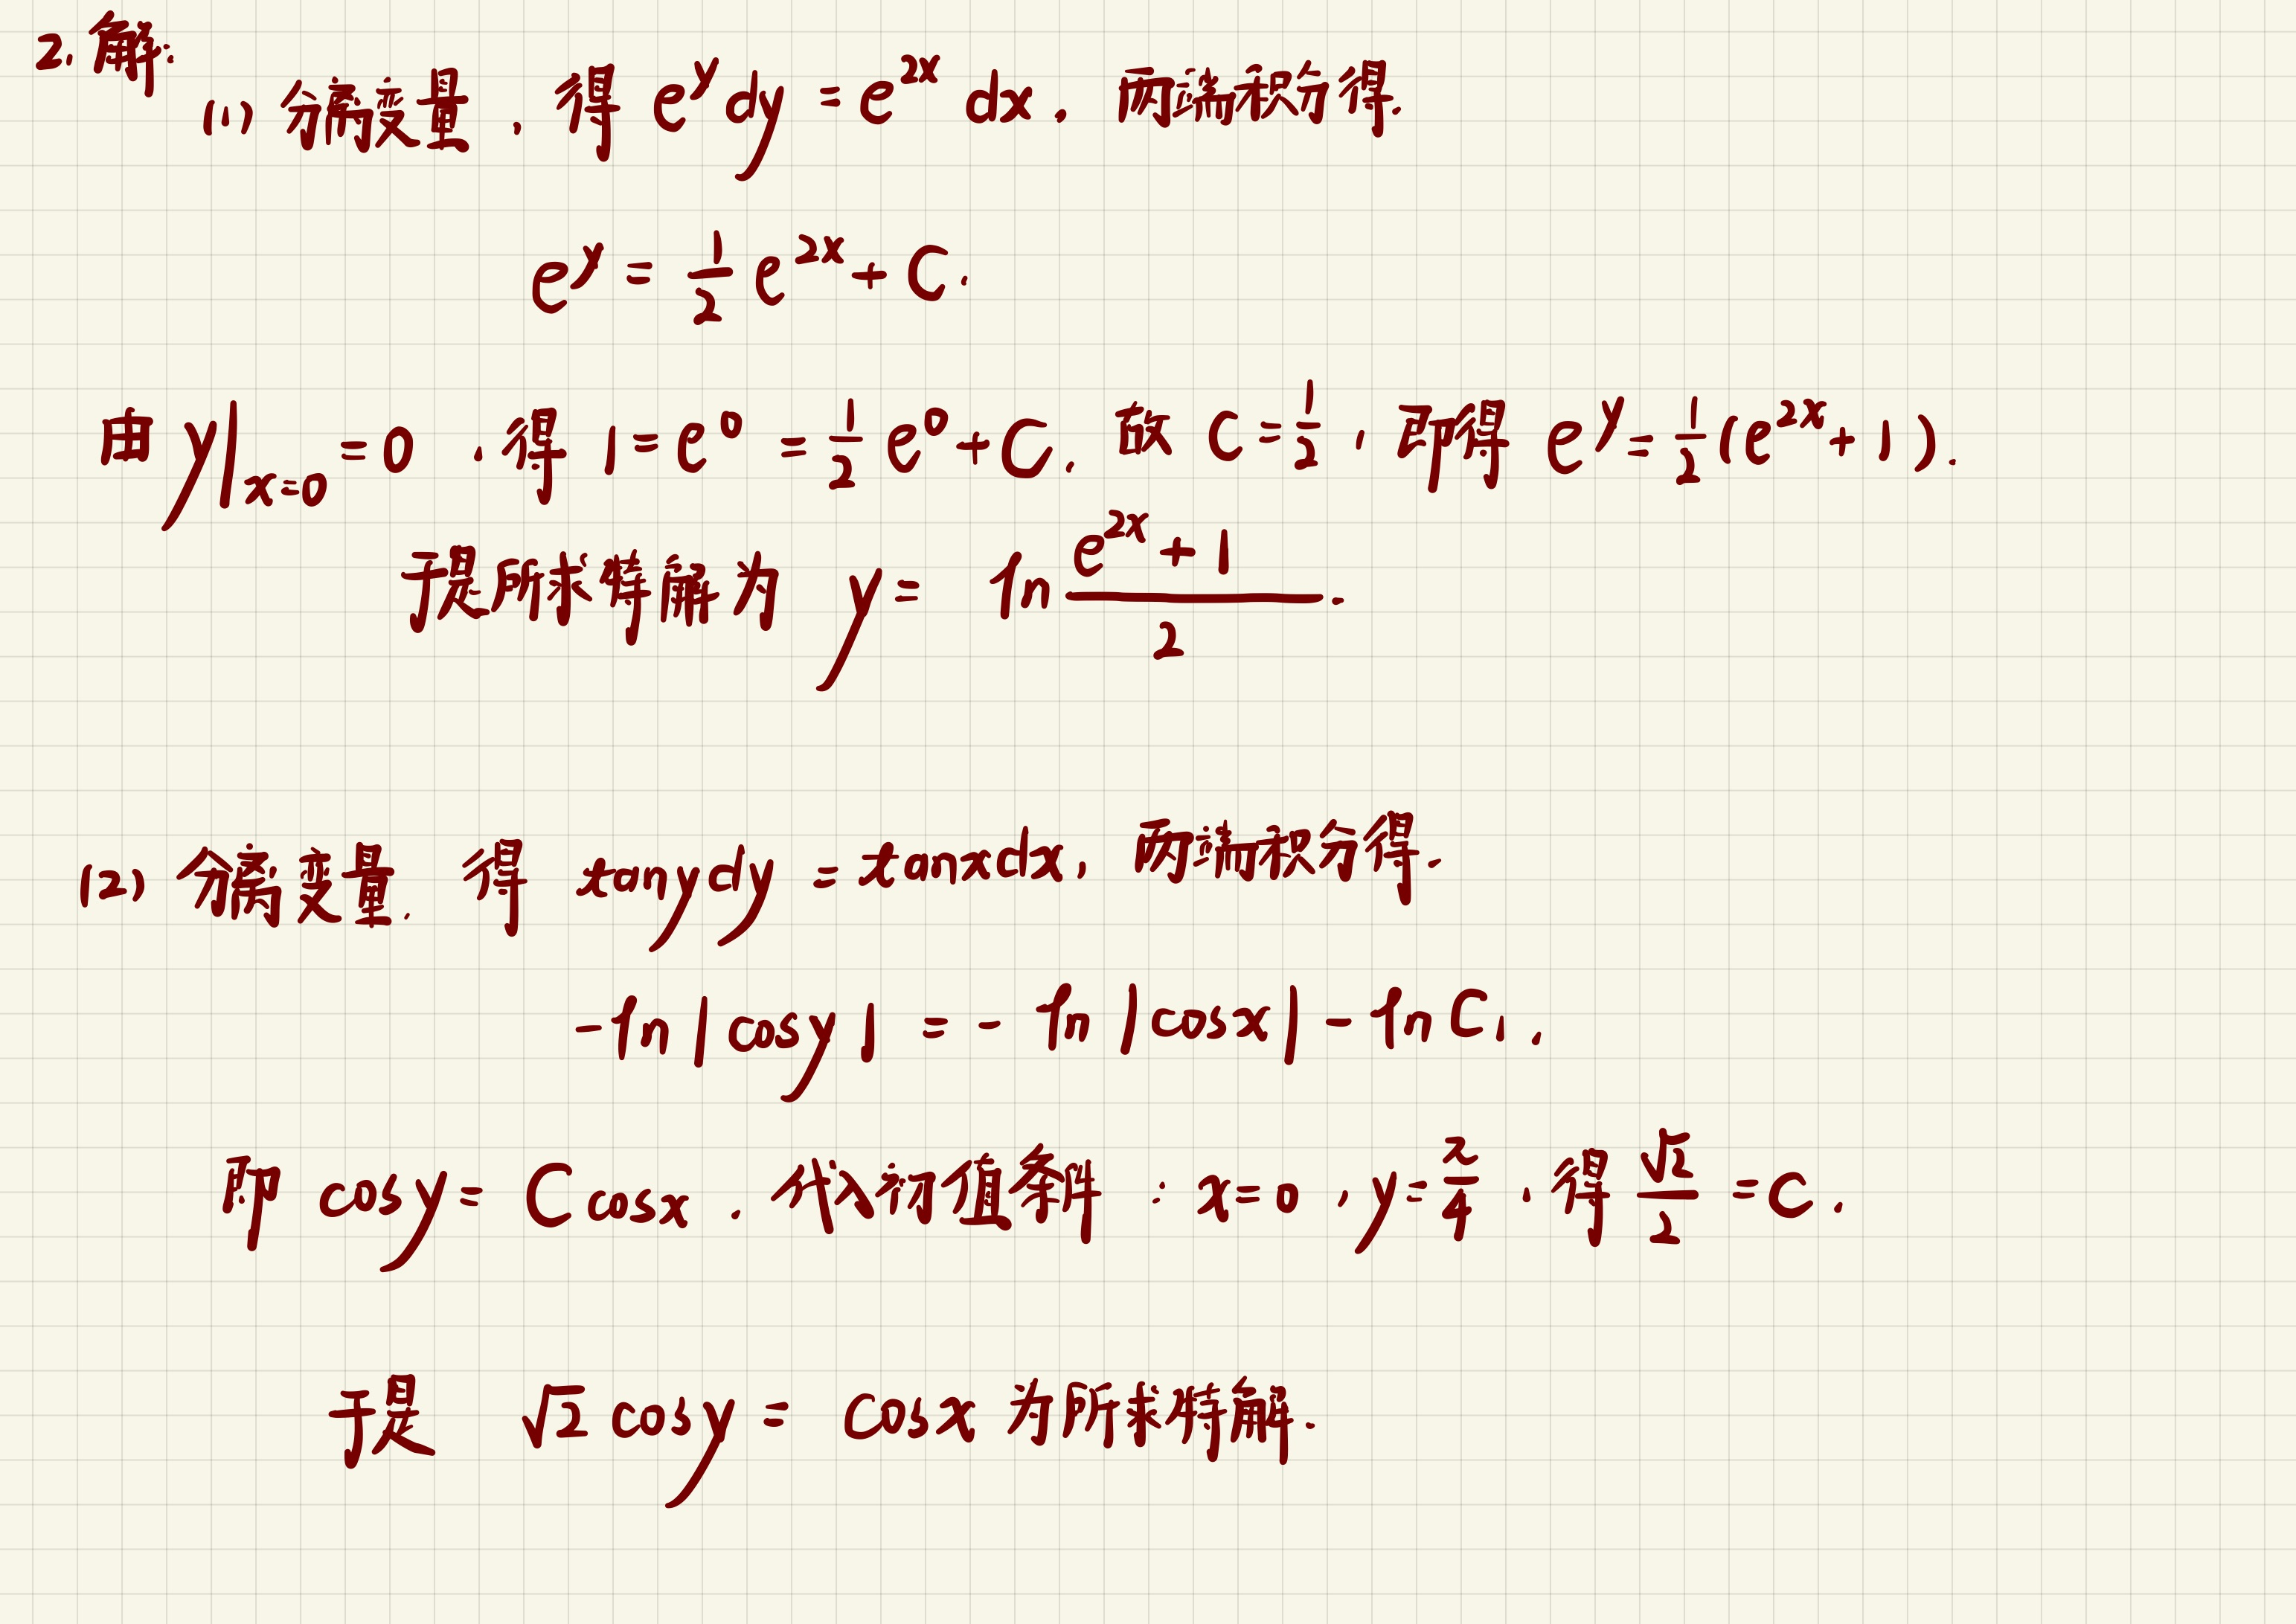 2. 解:
(1) 分离变量, 得 e^y dy = e^{2x} dx, 两端积分得.
e^y = \frac{1}{2} e^{2x} + C.
由 y|_{x=0} = 0, 得 1 = e^0 = \frac{1}{2} e^0 + C, 故 C = \frac{1}{2}, 即得 e^y = \frac{1}{2}(e^{2x} + 1).
于是所求特解为 y = ln \frac{e^{2x} + 1}{2}.
(2) 分离变量, 得 tan y dy = tan x dx, 两端积分得.
-ln|cos y| = -ln|cos x| - ln C_1,
即 cos y = C cos x. 代入初值条件: x=0, y=\frac{π}{4}, 得 \frac{\sqrt{2}}{2} = C.
于是 \sqrt{2} cos y = cos x 为所求特解.